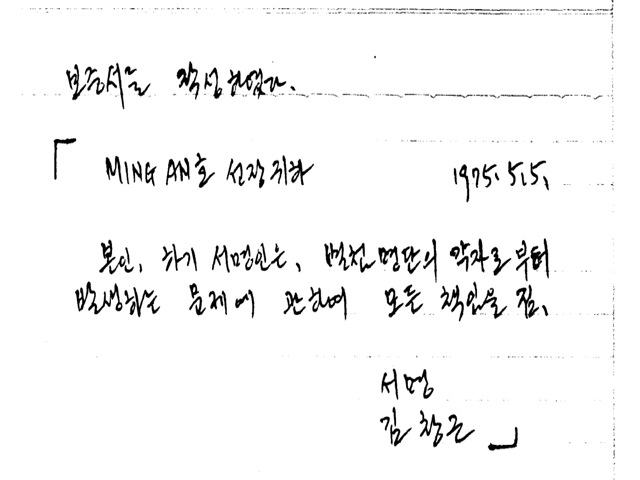 보증서를 작성하였다.
「 MING AN호 선장귀하 1975. 5. 5.
본인, 하기 서명인은, 별첨명단의 약자로부터
발생하는 문제에 관하여 모든 책임을 짐.
서명
김창근 」